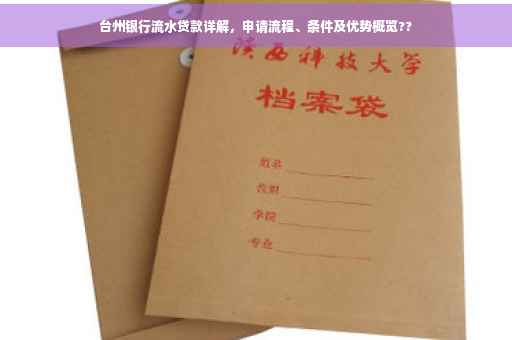 台州银行流水贷款详解，申请流程、条件及优势概览??
陕西科技大学
档案袋
姓名
学院
专业